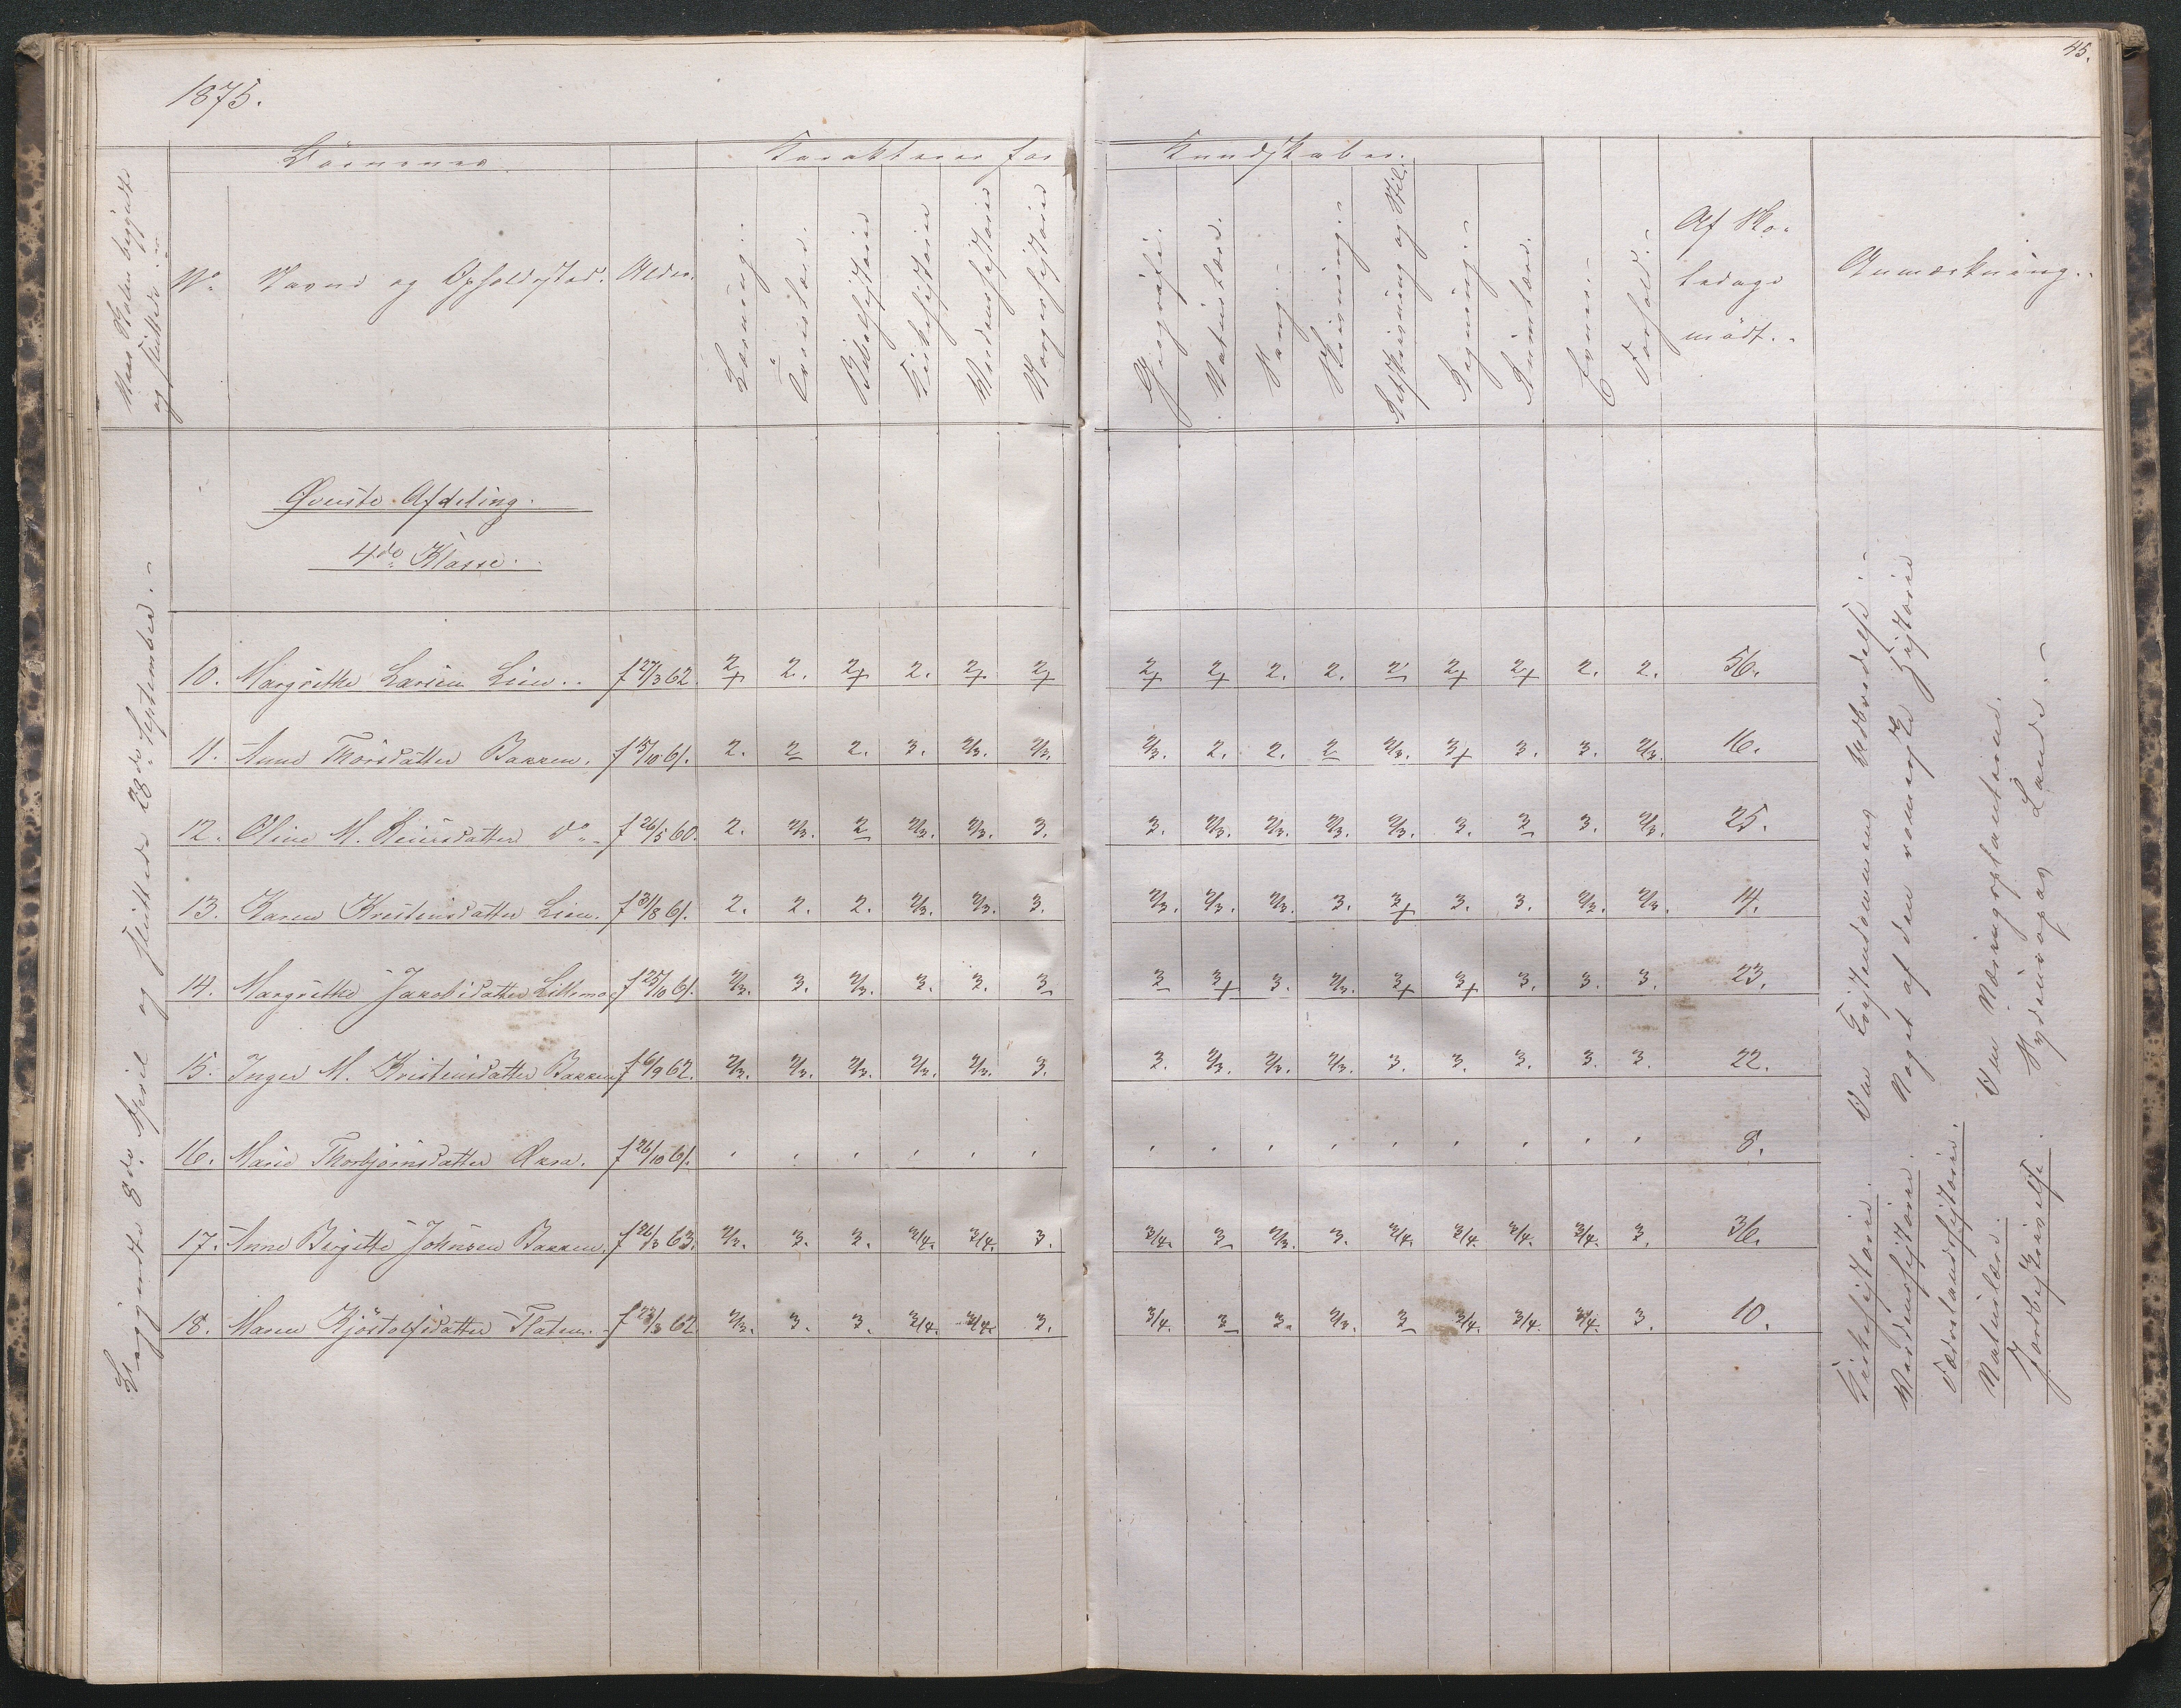 1875.
45.
Børnenes
Karakterer for
Kundskaber.
Naar Skolen begyndte
og sluttede.
No
Navne og Opholdssted.
Alder.
Læsning.
Troeslære.
Bibelhistorie
Kirkehistorie
Verdenshistorie
Norgeshistorie
Geografi.
Naturlære.
Sang.
Skrivning.
Retskrivning og Stil.
Regning.
Rumlære.
Evner.
Forhold.
Af Sko-
ledage
mödt.
Anmærkning.
Øverste Afdeling.
4de Klasse.
Begyndte 8de April og sluttede 28de September.
10. Margrethe Larsen Lien. f 27/3 62. 2+ 2. 2+ 2. 2+ 2+ 2+ 2+ 2. 2. 2 2+ 2+ 2. 2. 56.
11. Anne Thorsdatter Bakken. f 15/10 61. 2. 2 2. 3. 2/3. 2/3. 2/3. 2. 2. 2 2/3. 3+ 3. 3. 2/3. 16.
12. Oline M. Reiersdatter Do f 26/5 60. 2. 2/3. 2 2/3. 2/3. 3. 3. 2/3. 2/3. 2/3. 2/3. 3. 3 3. 2/3. 25.
13. Karen Kristensdatter Lien. f 31/8 61. 2. 2. 2. 2/3. 2/3. 3. 2/3. 2/3. 2/3. 3. 3+ 3. 3. 2/3. 2/3. 14.
14. Margrethe Jakobsdatter Lillemo f 25/10 61. 2/3. 3. 2/3. 3. 3. 3 3 3+ 3. 2/3. 3+ 3+ 3. 3. 3. 23.
15. Inger M. Kristensdatter Bakken f 6/9 62. 2/3. 2/3. 2/3. 2/3. 2/3. 3. 3. 2/3. 2/3. 2/3. 3. 3. 3. 3. 3. 22.
16. Marie Thorbjørnsdatter f 26/10 61. 8.
17. Anne Birgitte Johnsen Bakken. f 26/3 63. 2/3. 3. 3. 3/4. 3/4. 3. 3/4. 3 2/3. 3. 3/4. 3/4. 3/4. 3/4. 3. 36.
18. Maren Kjöstolfsdatter Flaten. f 23/3 62. 2/3. 3. 3. 3/4. 3/4. 3. 3/4. 3 3. 2/3. 3 3/4. 3/4. 3/4. 3. 10.
Kirkehistorie. Den Kristendommens Udbredelse.
Verdenshistorie. Noget af den romerske Historie
Fædrelandshistorie.
Naturlære. Om Næringsplanterne.
Jordbeskrivelse. Sydeuropas Lande.